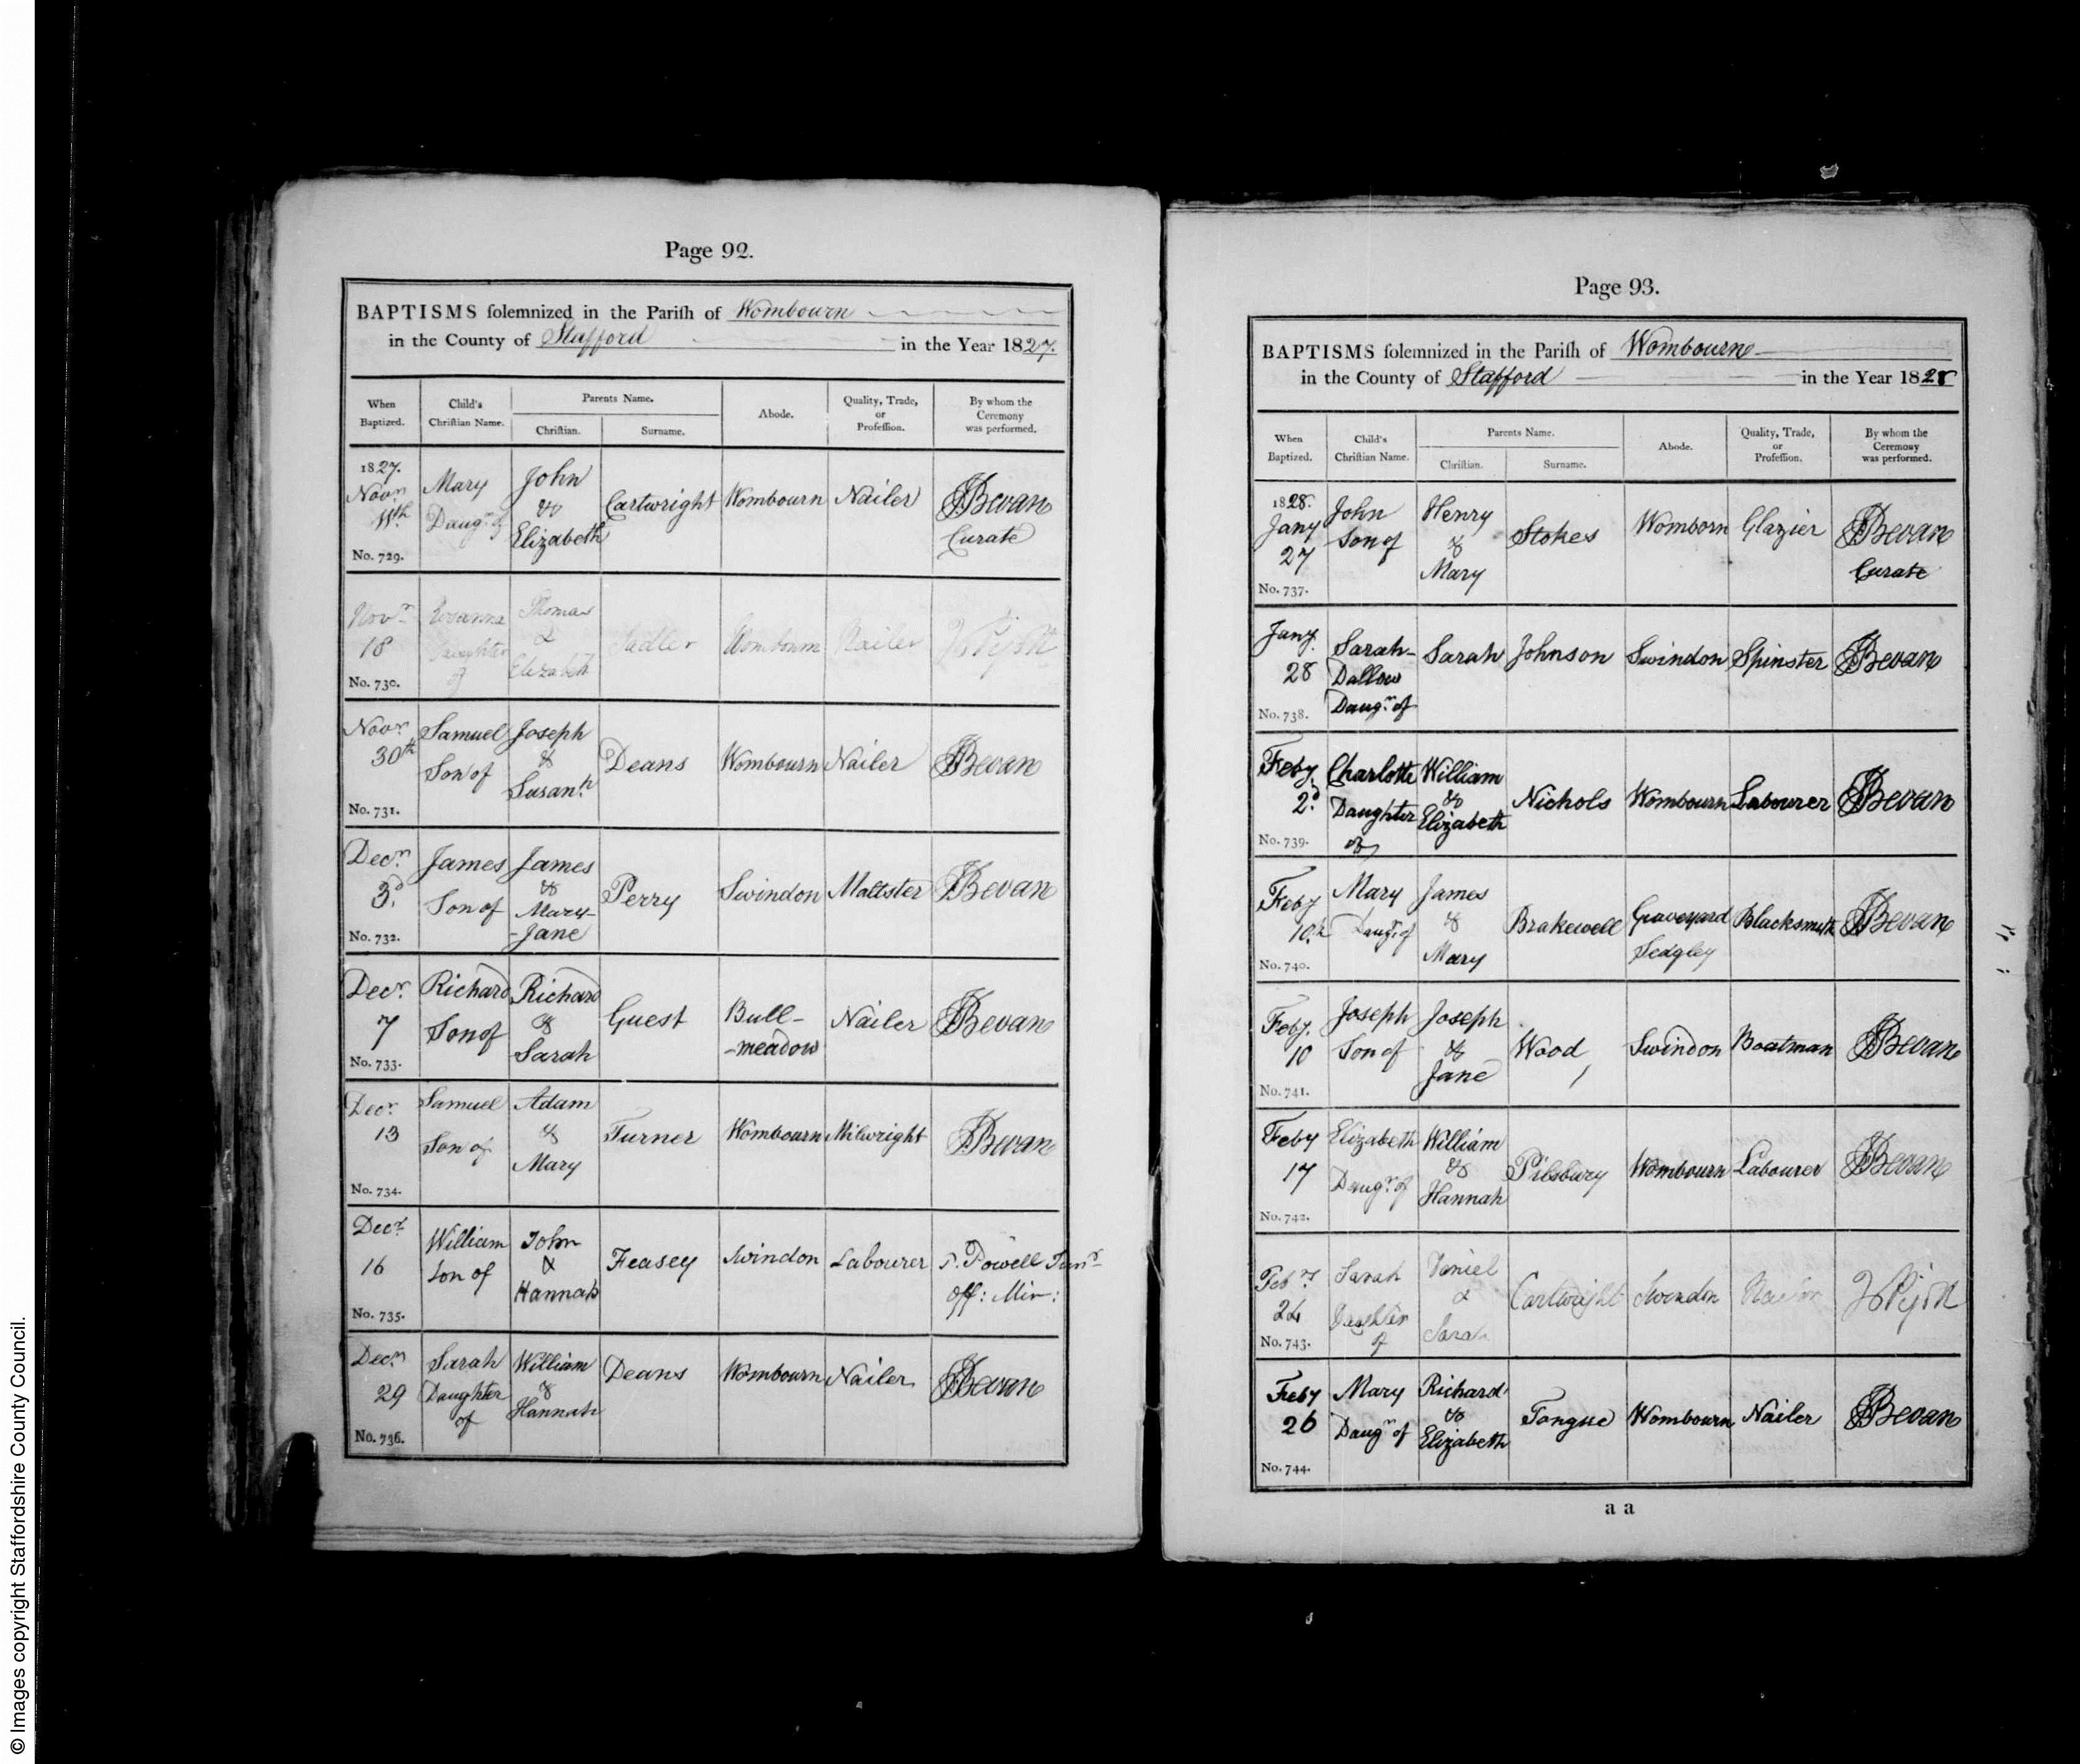 Page 92.
BAPTISMS solemnized in the Parish of Wombourn
in the County of Stafford in the Year 1827.
When Baptized. Child's Christian Name. Parents Name. Christian. Surname. Abode. Quality, Trade, or Profession. By whom the Ceremony was performed.
1827. Novr. 11th No. 729. Mary Daugr. of John & Elizabeth Cartwright Wombourn Nailer JBevan Curate
Novr 18 No. 730. Rosanna Daughter of Thomas & Elizabeth Sadler Wombourn Nailer
Novr 30th No. 731. Samuel Son of Joseph & Susanh Deans Wombourn Nailer JBevan
Decr. 3d. No. 732. James Son of James & Mary- -Jane Perry Swindon Maltster JBevan
Decr. 7 No. 733. Richard Son of Richard & Sarah Guest Bull- -meadow Nailer JBevan
Decr. 13 No. 734. Samuel Son of Adam & Mary Turner Wombourn Milwright JBevan
Decr. 16 No. 735. William Son of John & Hannah Feasey Swindon Labourer Powell Junr. Off: Min:
Decr. 29 No. 736. Sarah Daughter of William & Hannah Deans Wombourn Nailer JBevan
Page 93.
BAPTISMS solemnized in the Parish of Wombourne
in the County of Stafford in the Year 1828
When Baptized. Child's Christian Name. Parents Name. Christian. Surname. Abode. Quality, Trade, or Profession. By whom the Ceremony was performed.
1828. Jany 27 No. 737. John Son of Henry & Mary Stokes Womborn Glazier JBevan Curate
Jany. 28 No. 738. Sarah- Dallow Daugr. of Sarah Johnson Swindon Spinster JBevan
Feby. 2d. No. 739. Charlotte Daughter of William & Elizabeth Nichols Wombourn Labourer JBevan
Feby 10th No. 740. Mary Daugr. of James & Mary Brakewell Graveyard Sedgley Blacksmith JBevan
Feby. 10 No. 741. Joseph Son of Joseph & Jane Wood Swindon Boatman JBevan
Feby 17 No. 742. Elizabeth Daugr. of William & Hannah Pilsbury Wombourn Labourer JBevan
Feby 24 No. 743. Sarah Daughter of Daniel & Sarah Cartwright Swindon Nailor
Feby 26 No. 744. Mary Daugr of Richard & Elizabeth Tongue Wombourn Nailer JBevan
a a
© Images copyright Staffordshire County Council.